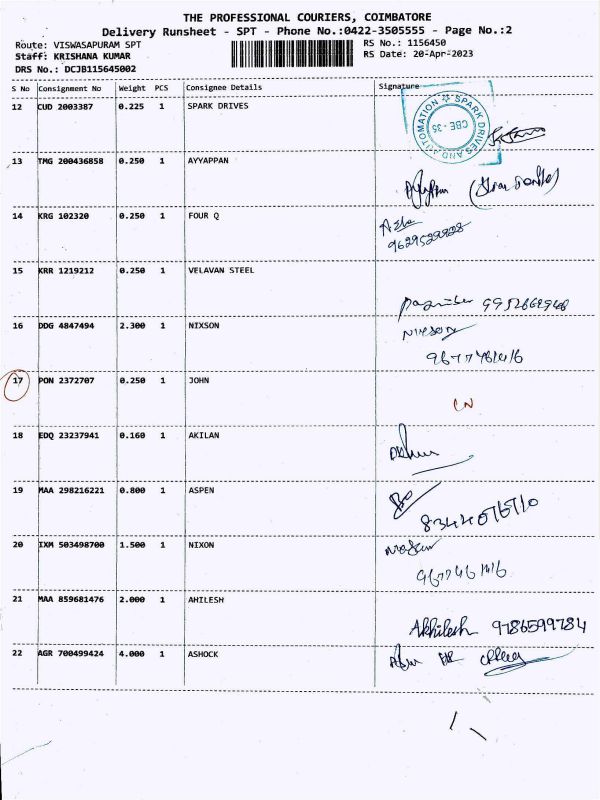 THE PROFESSIONAL COURIERS, COIMBATORE
Delivery Runsheet - SPT - Phone No.:0422-3505555 - Page No.:2
Route: VISWASAPURAM SPT
RS No.: 1156450
Staff: KRISHANA KUMAR
RS Date: 20-Apr-2023
DRS No.: DCJB115645002
S No Consignment No Weight PCS Consignee Details Signature
12 CUD 2003387 0.225 1 SPARK DRIVES
SPARK DRIVES AND AUTOMATION
CBE - 35
13 TMG 200436858 0.250 1 AYYAPPAN
14 KRG 102320 0.250 1 FOUR Q
9629529828
15 KRR 1219212 0.250 1 VELAVAN STEEL
16 DDG 4847494 2.300 1 NIXSON
NIXSON
17 PON 2372707 0.250 1 JOHN
CN
18 EDQ 23237941 0.160 1 AKILAN
19 MAA 298216221 0.800 1 ASPEN
20 IXM 503498700 1.500 1 NIXON
21 MAA 859681476 2.000 1 AHILESH
Akhilesh 9786599784
22 AGR 700499424 4.000 1 ASHOCK